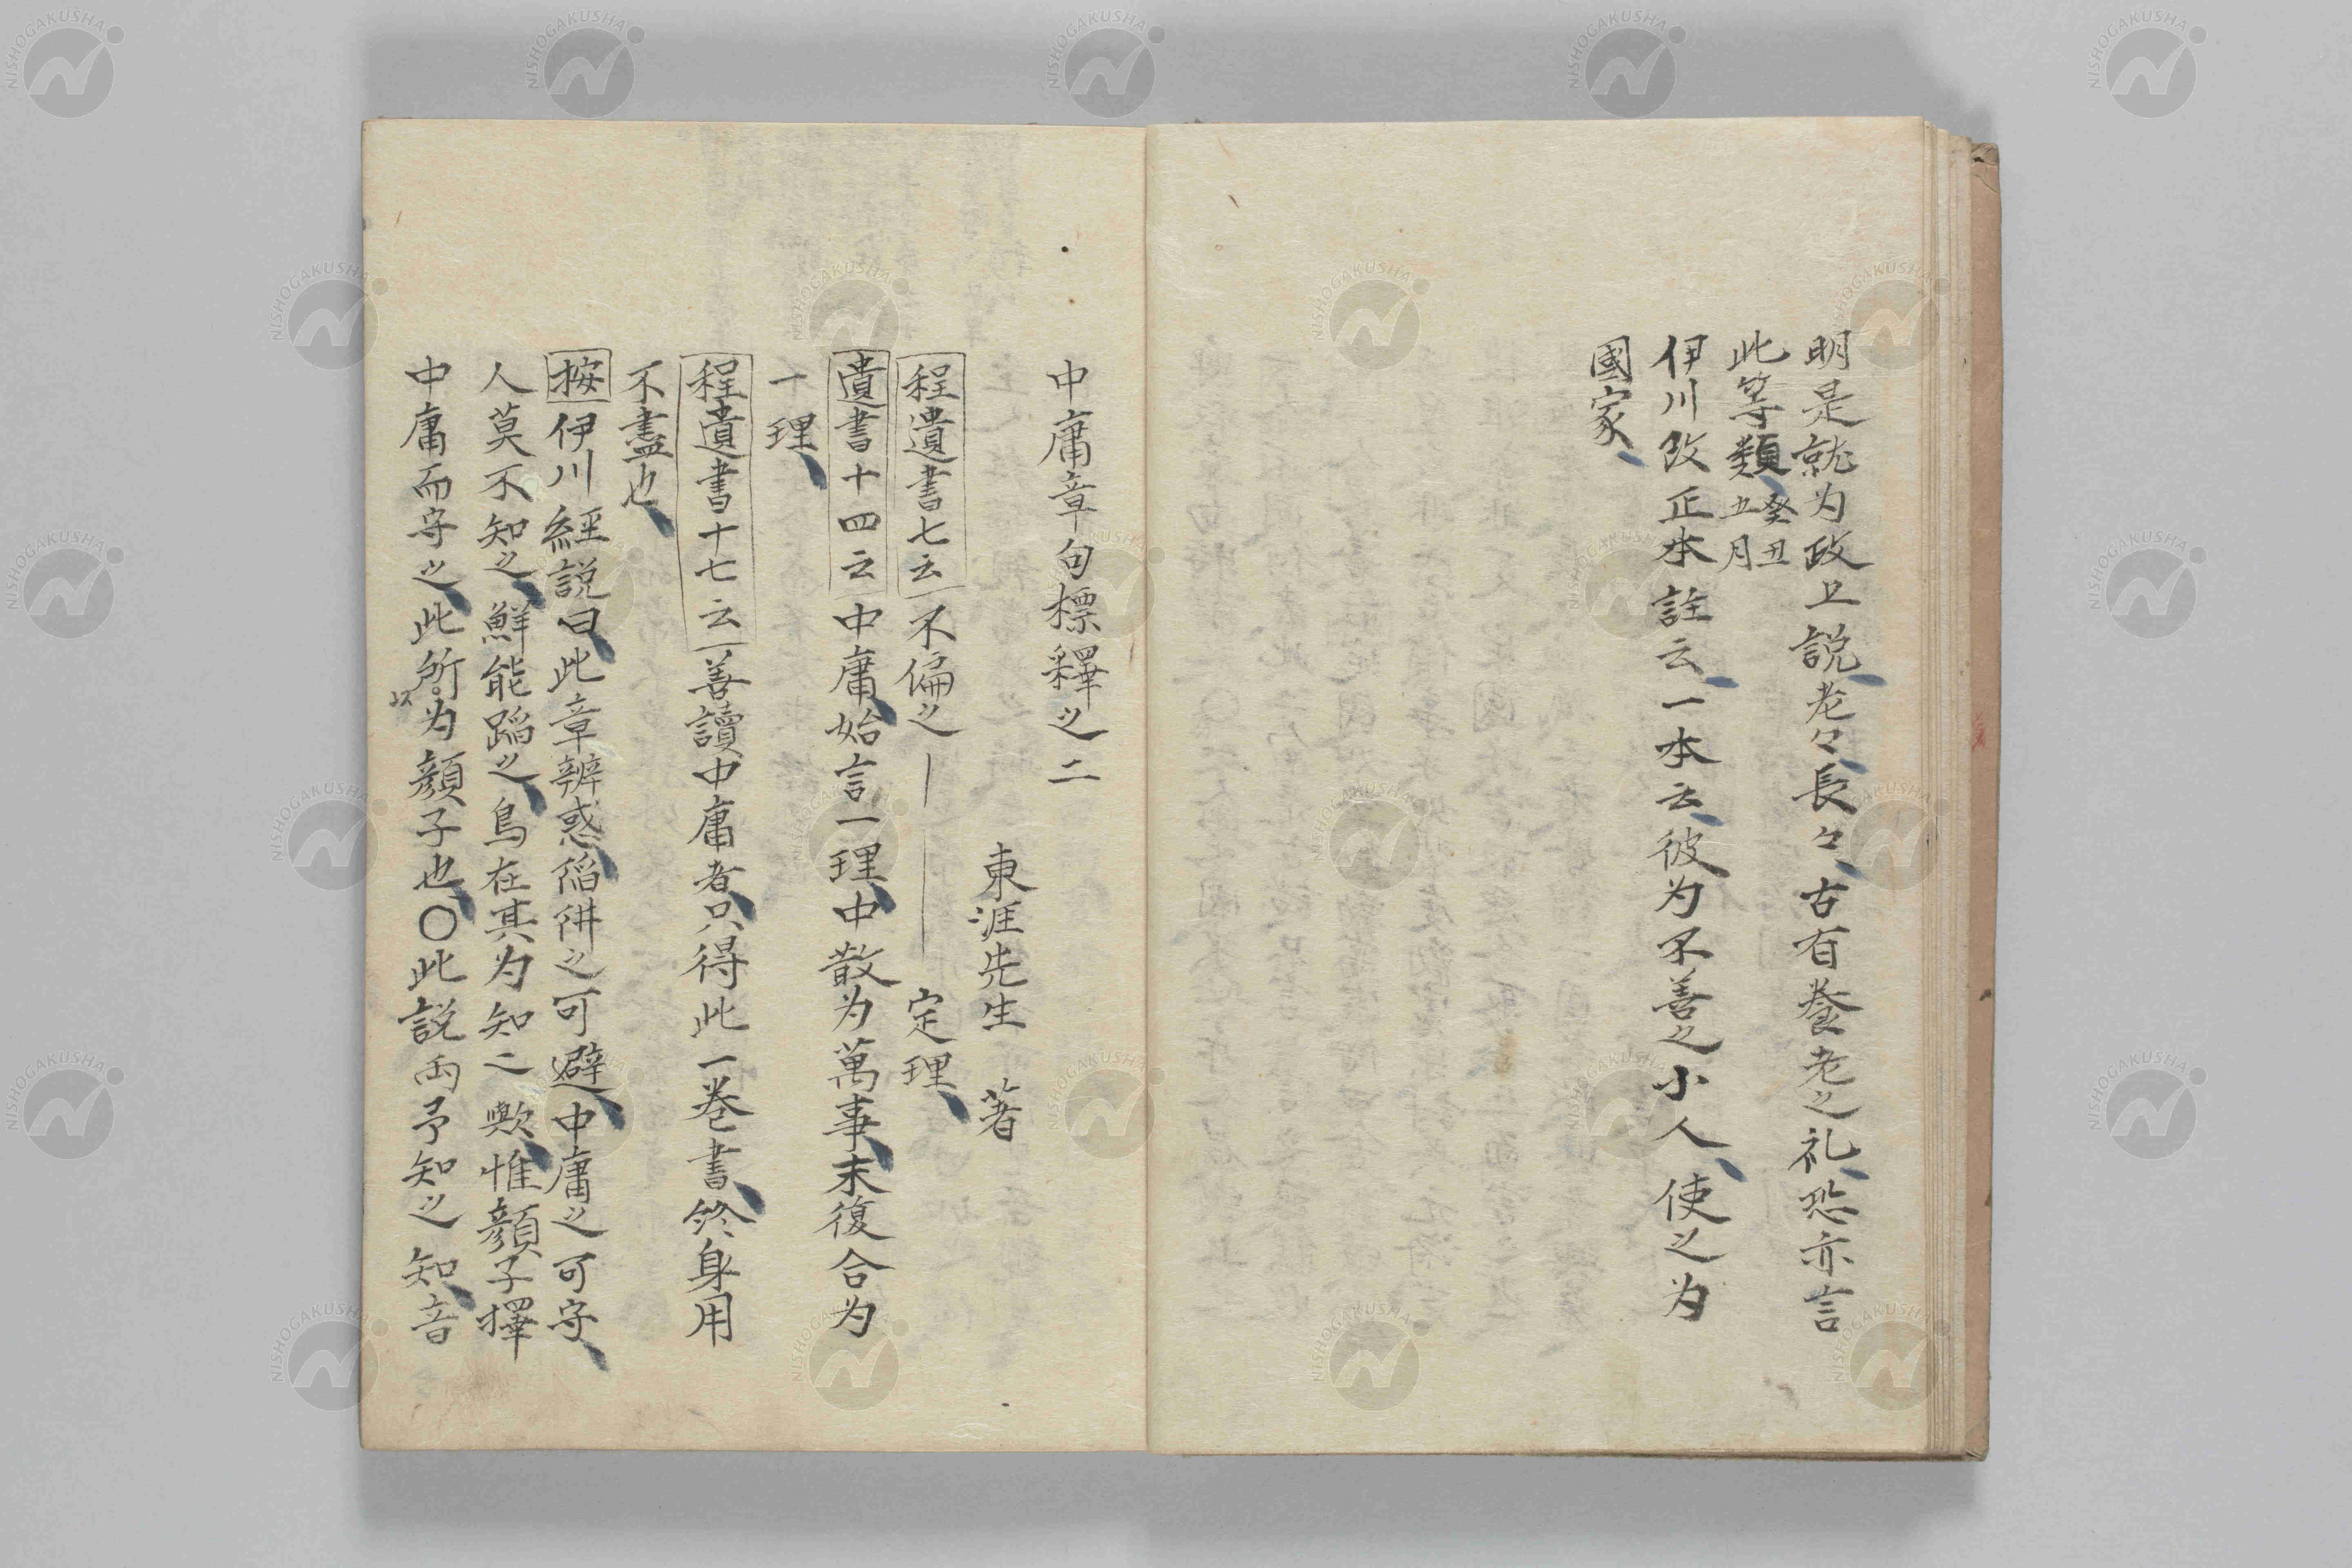 明是就为政上説老々長々古有養老之礼恐亦言
此等類癸丑五月
伊川改正本註云一本云彼为不善之小人使之为
國家
中庸章句標釋之二
東涯先生 著
程遺書七云不偏之――定理
遺書十四云中庸始言一理中散为萬事末復合为
一理
程遺書十七云善讀中庸者只得此一巻書終身用
不盡也
按伊川經説曰此章辨惑䧟阱之可避中庸之可守
人莫不知之鮮能蹈之烏在其为知二歟惟顔子擇
中庸而守之此所以为顔子也〇此説両予知之知音
NISHOGAKUSHA